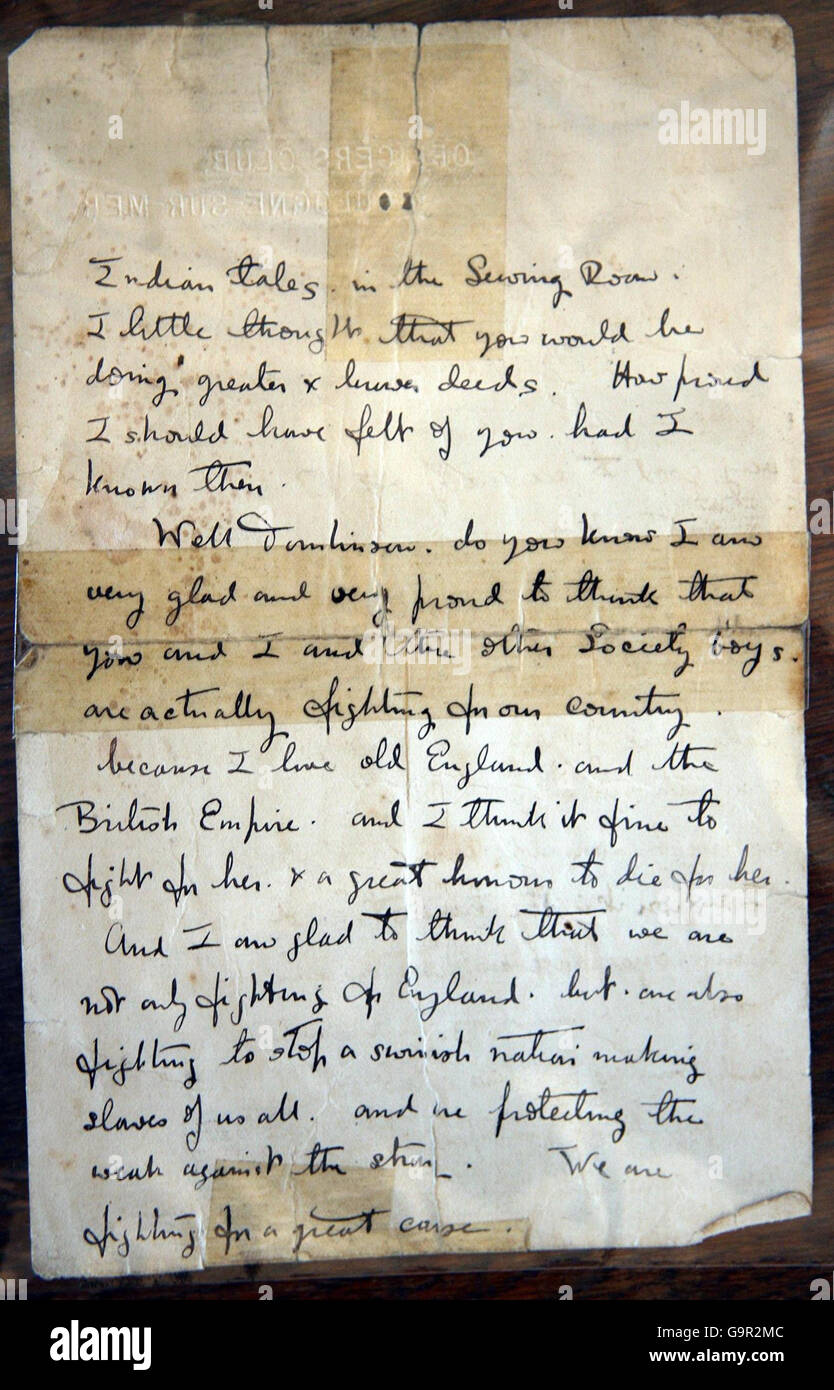 OFFICERS CLUB
BOULOGNE SUR MER
Indian tales. in the Sewing Room.
I little thought that you would be
doing greater & braver deeds. How proud
I should have felt of you. had I
known then.
Well Tomlinson. do you know I am
very glad and very proud to think that
you and I and the other Society boys.
are actually fighting for our country.
because I love old England. and the
British Empire. and I think it fine to
fight for her. & a great honour to die for her.
And I am glad to think that we are
not only fighting for England. but. are also
fighting to stop a swinish nation making
slaves of us all. and are protecting the
weak against the strong.  We are
fighting for a great cause.
alamy
a
alamy
a
alamy
a
alamy
alamy
Image ID: G9R2MC
www.alamy.com